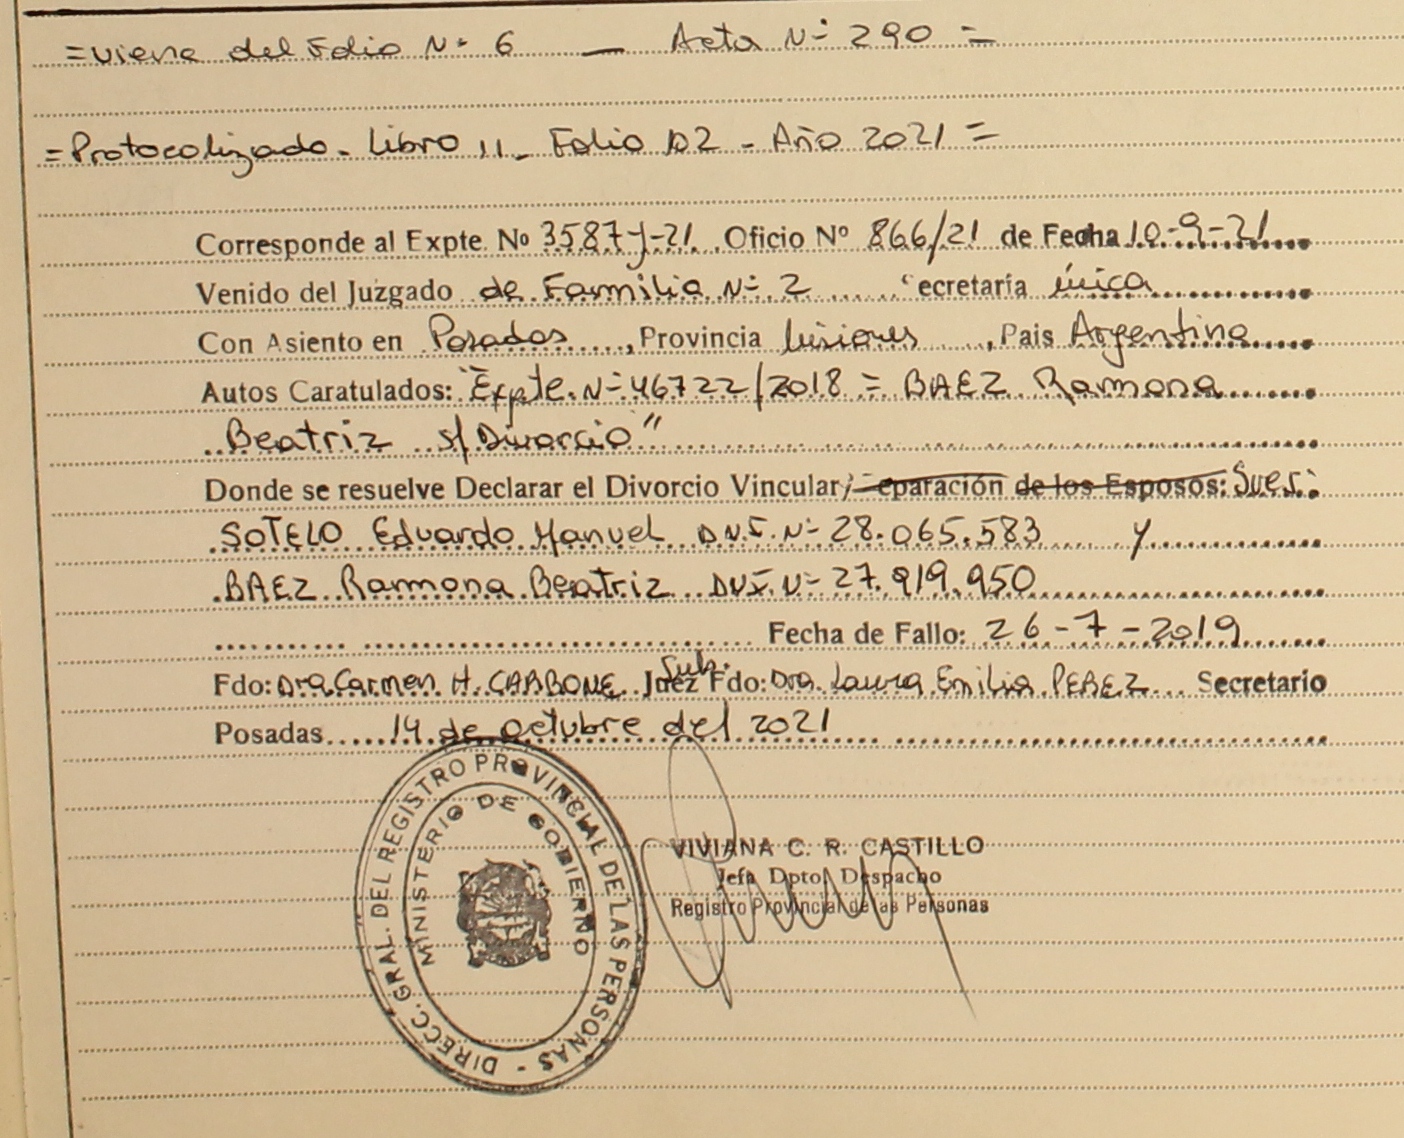 =viene del Folio Nº 6 — Acta Nº 290 =
=Protocolizado - Libro 11 - Folio 102 - Año 2021 =
Corresponde al Expte. Nº 3587-y-21 Oficio Nº 866/21 de Fecha 10-9-21
Venido del Juzgado de Familia Nº 2 ecretaría única
Con Asiento en Posadas, Provincia Misiones, Pais Argentina
Autos Caratulados: "Expte. Nº 46722/2018 = BAEZ Ramona
Beatriz s/Divorcio"
Donde se resuelve Declarar el Divorcio Vincular/ eparación de los Esposos: Sres:
SOTELO Eduardo Manuel D.N.I. Nº 28.065.583 y
BAEZ Ramona Beatriz DNI. Nº 27.919.950
Fecha de Fallo: 26-7-2019
Fdo: Dra Carmen H. CARBONE Juez Sub. Fdo: Dra. Laura Emilia PEREZ Secretario
Posadas 14 de octubre del 2021
DIRECC. GRAL. DEL REGISTRO PROVINCIAL DE LAS PERSONAS -
MINISTERIO DE GOBIERNO
VIVIANA C. R. CASTILLO
Jefa Dpto. Despacho
Registro Provincial de las Personas